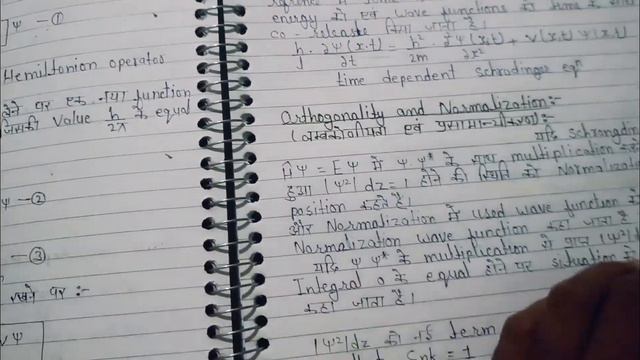 ]Ψ — ①
Hemiltonion operator
देने पर एक नया function
जिसकी value h/2π के equal
Ψ — ②
— ③
रखने पर :-
Ψ
energy को एवं wave functions को time के साथ
co-relate किया जाता है।
h/j · ∂Ψ(x,t)/∂t = h²/2m · ∂²Ψ(x,t)/∂x² + V(x,t) Ψ(x,t)
time dependent schrodinger eqⁿ
Orthogonality and Normalization:-
(लम्बकोणीयता एवं प्रसामान्यीकरण)
यदि schrongding
ĤΨ = EΨ में Ψ Ψ* के साथ multiplication करते
हुआ |Ψ²| dz = 1 होने की स्थिति को Normalizat
position कहते है।
और Normalization में used wave function को
Normalization wave function कहा जाता है
यदि Ψ Ψ* के multiplication से प्राप्त |Ψ²|
Integral 0 के equal होने पर situation को
कहा जाता है।
|Ψ²| dz की नई term
Cnk = 1